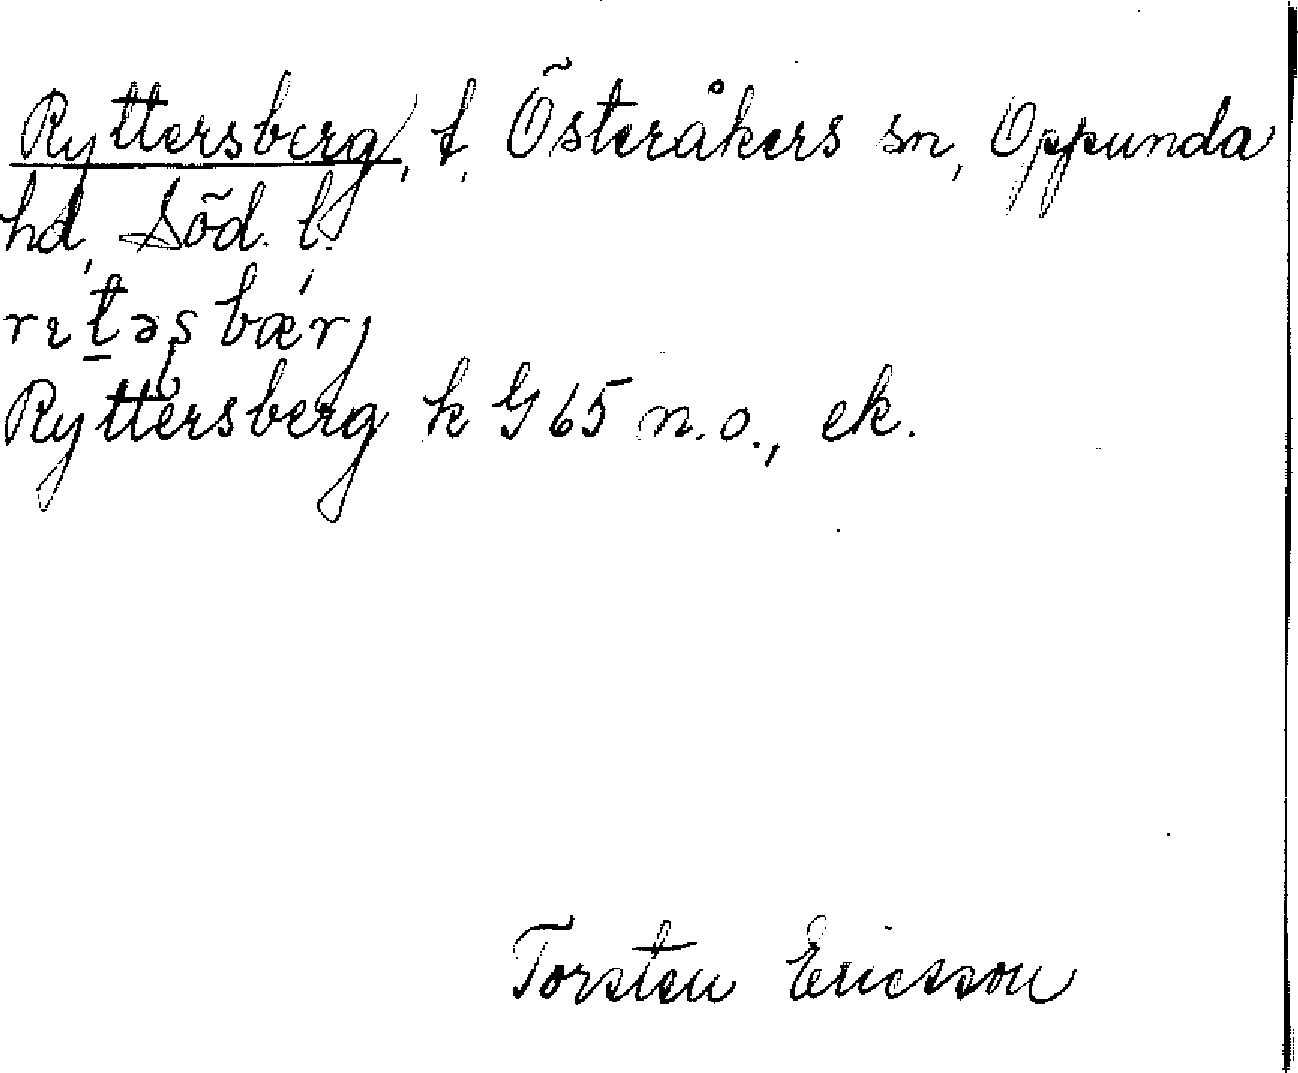 Ryttersberg, t, Österåkers sn, Oppunda
hd, Söd. l.
Ryttersberg k G 65 n.o., ek.
Torsten Ericsson